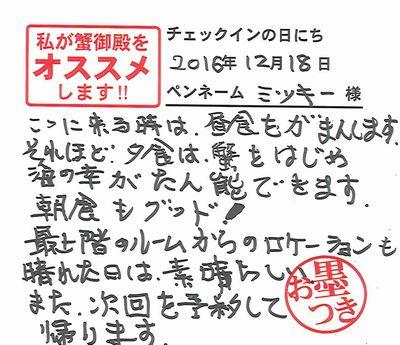 私が蟹御殿を
オススメ
します!!
チェックインの日にち
2016年12月18日
ペンネーム ミッキー 様
ここに来る時は、昼食もがまんします。
それほど、夕食は、蟹をはじめ
海の幸がたん能できます。
朝食もグッド!
最上階のルームからのロケーションも
晴れた日は、素晴らしい
また、次回を予約して
帰ります。
お墨つき